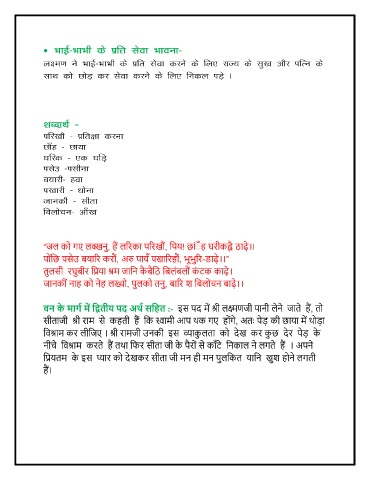 • भाई-भाभी के प्रति सेवा भावना-
लक्ष्मण ने भाई-भाभी के प्रति सेवा करने के लिए राज्य के सुख और पत्नि के
साथ को छोड़ कर सेवा करने के लिए निकल पड़े ।
शब्दार्थ -
परिखौ - प्रतिक्षा करना
छाँह - छाया
घरिक - एक घड़ि
पसेउ -पसीना
बयारी- हवा
पखारी - धोना
जानकी - सीता
विलोचन- आँख
"जल को गए लक्खनु, हैं लरिका परिखौं, पिय! छाँह घरीकह्वै ठाढ़े।।
पोंछि पसेउ बयारि करौं, अरु पायँ पखारिहौं, भूभुरि-डाढ़े।।"
तुलसी रघुबीर प्रिया श्रम जानि कैबैठि बिलंबलौं कंटक काढ़े।
जानकीं नाह को नेह लख्यो, पुलको तनु, बारि श बिलोचन बाढ़े।।
वन के मार्ग में द्वितीय पद अर्थ सहित :- इस पद में श्री लक्ष्मणजी पानी लेने जाते हैं, तो
सीताजी श्री राम से कहती हैं कि स्वामी आप थक गए होंगे, अतः पेड़ की छाया में थोड़ा
विश्राम कर लीजिए । श्री रामजी उनकी इस व्याकुलता को देख कर कुछ देर पेड़ के
नीचे विश्राम करते हैं तथा फिर सीता जी के पैरों से काँटे निकाल ने लगते हैं । अपने
प्रियतम के इस प्यार को देखकर सीता जी मन ही मन पुलकित यानि खुश होने लगती
हैं।